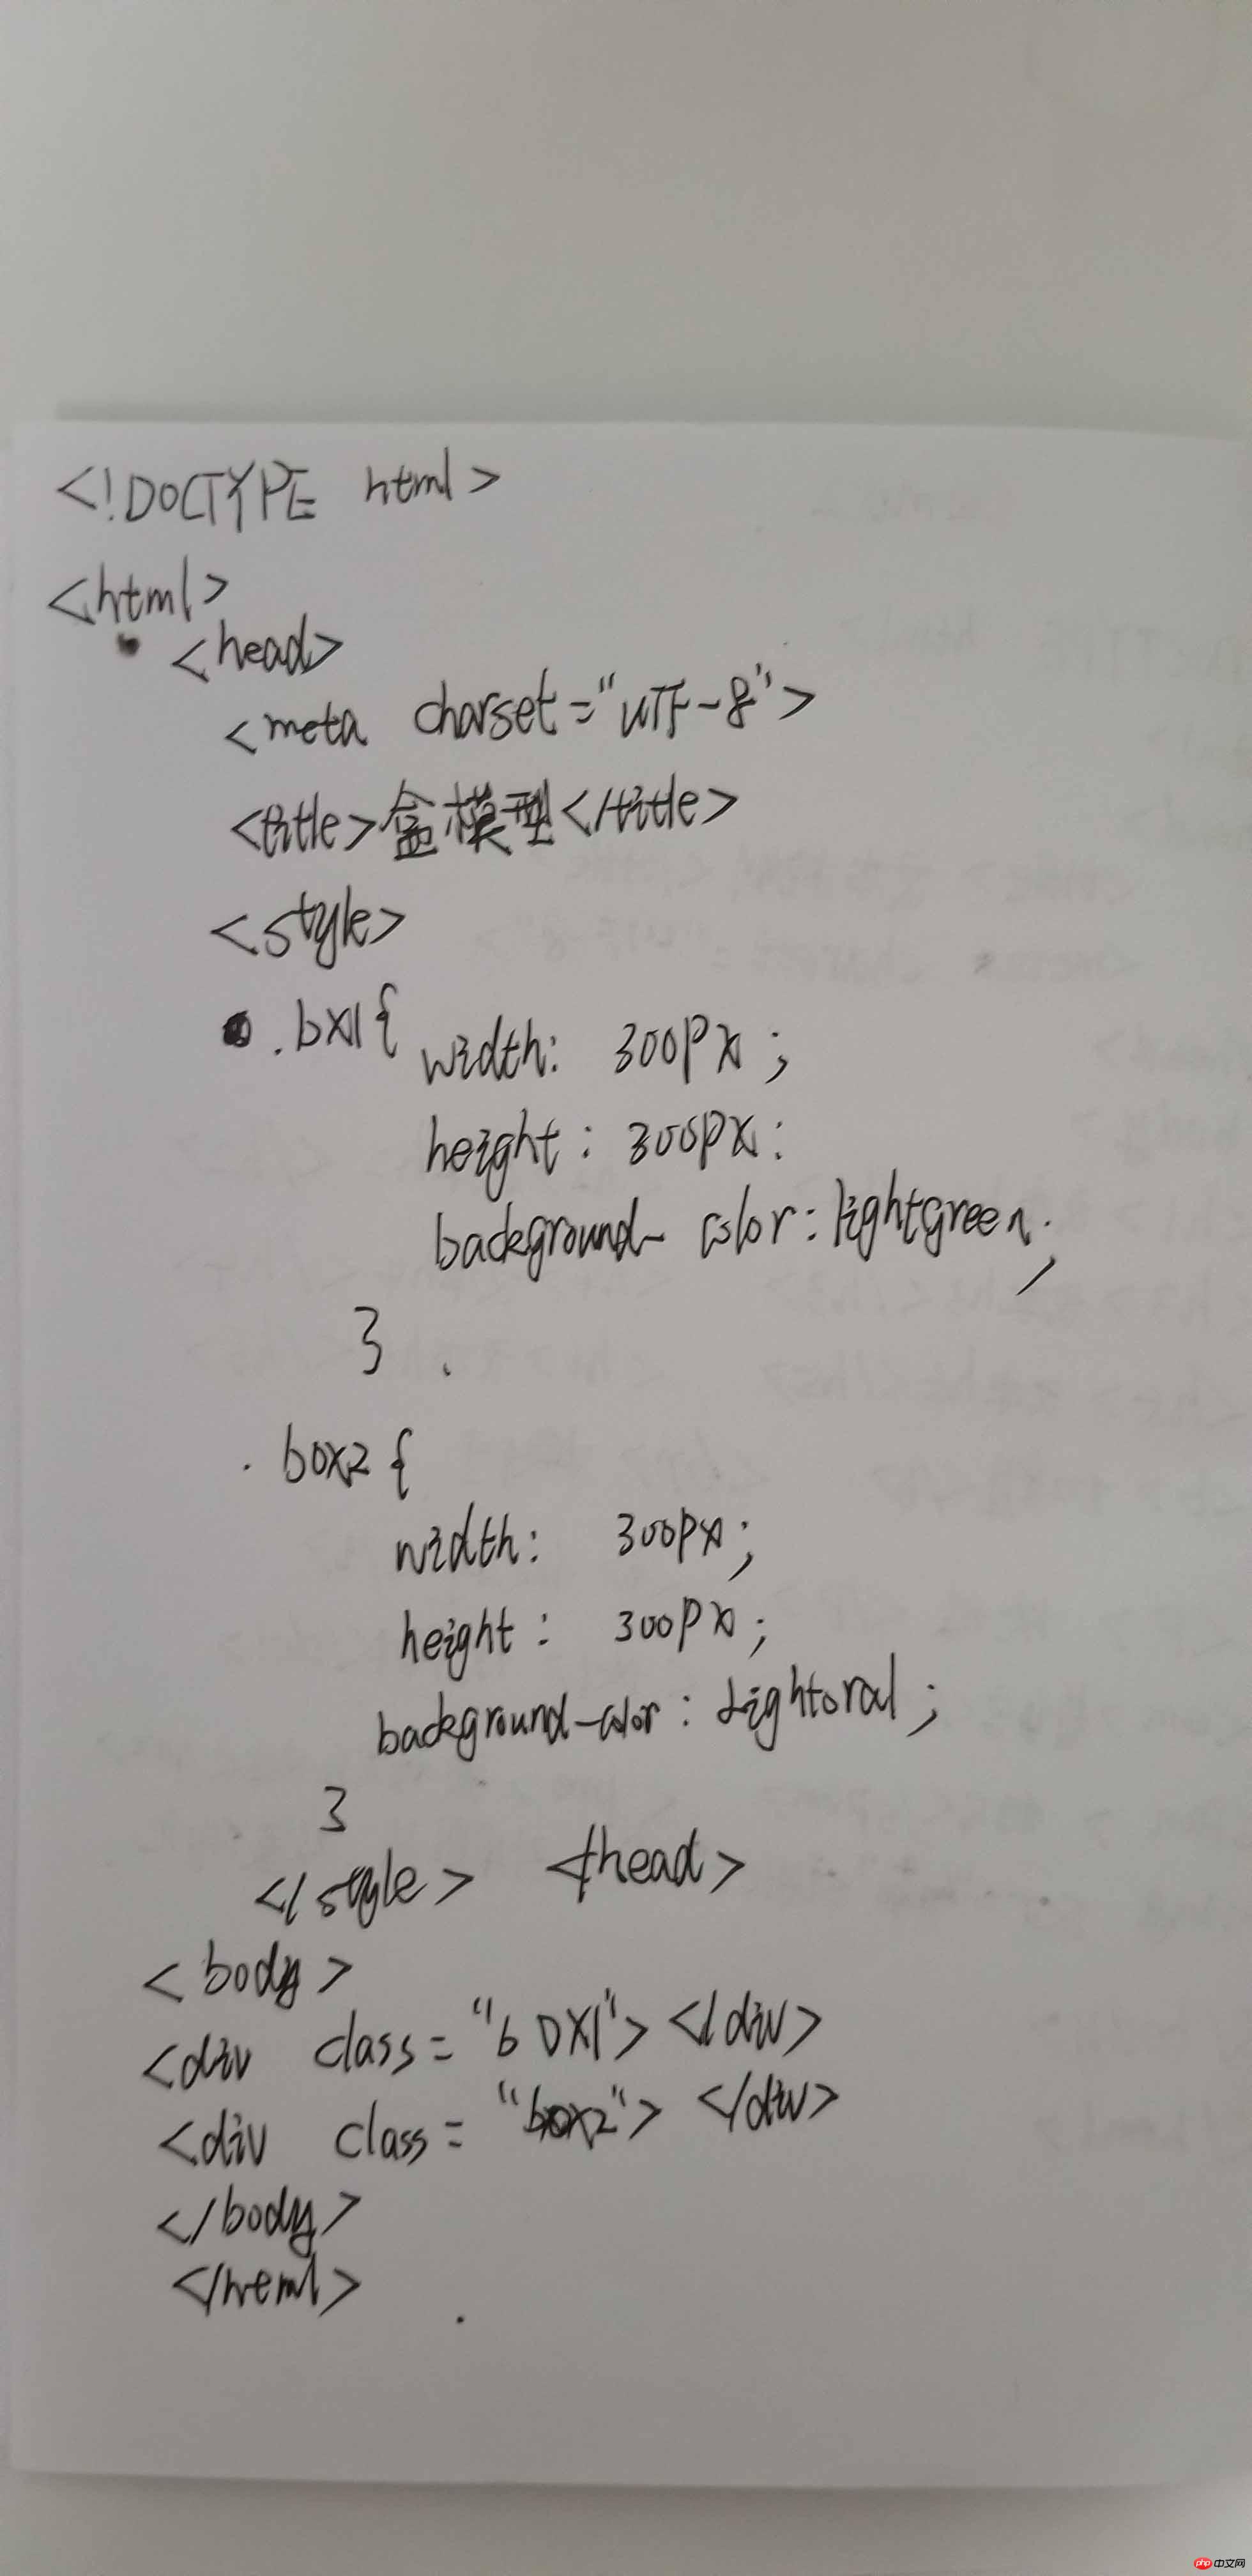 <!DOCTYPE html>
<html>
<head>
<meta charset="UTF-8">
<title>盒模型</title>
<style>
.bx1{
width: 300px;
height: 300px:
background-color: lightgreen;
}
.box2{
width: 300px;
height: 300px;
background-color: lightoral;
}
</style> </head>
<body>
<div class="box1"></div>
<div class="box2"></div>
</body>
</html>
php 中文网